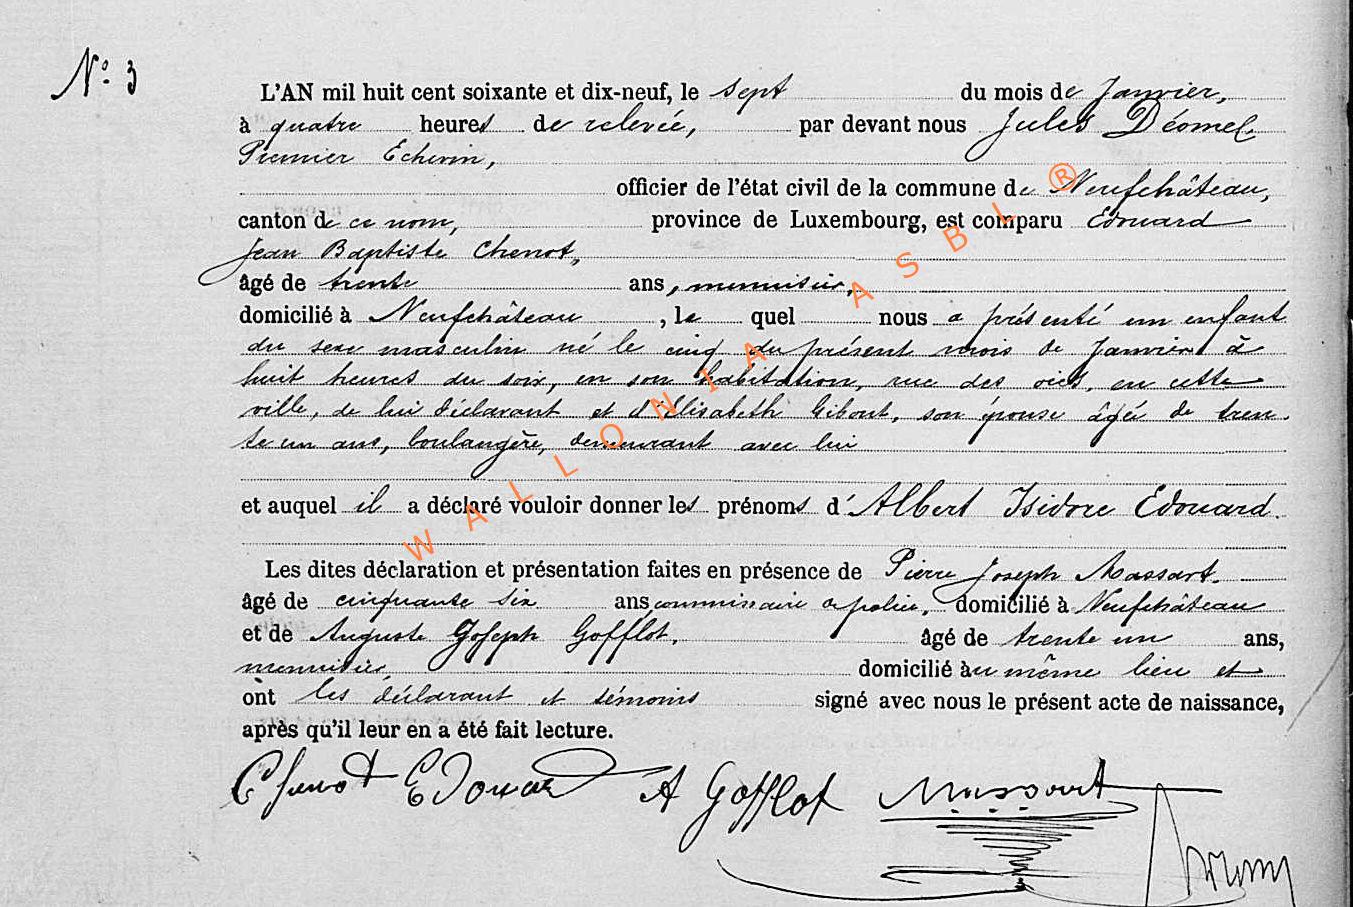 N° 3
L'AN mil huit cent soixante et dix-neuf, le sept du mois de Janvier,
à quatre heures de relevée, par devant nous Jules Déome
Premier Echevin,
officier de l'état civil de la commune de Neufchâteau,
canton de ce nom, province de Luxembourg, est comparu Edouard
Jean Baptiste Chenot,
âgé de trente ans, menuisier,
domicilié à Neufchâteau, le quel nous a présenté un enfant
du sexe masculin né le cinq du présent mois de Janvier à
huit heures du soir, en son habitation, rue des oies, en cette
ville, de lui déclarant et d'Elisabeth Gibout, son épouse âgée de tren-
te un ans, boulangère, demeurant avec lui
et auquel il a déclaré vouloir donner les prénoms d'Albert Isidore Edouard.
Les dites déclaration et présentation faites en présence de Pierre Joseph Massart.
âgé de cinquante six ans commissaire de police, domicilié à Neufchâteau
et de Auguste Joseph Gofflot, âgé de trente un ans,
menuisier, domicilié au même lieu et
ont les déclarant et témoins signé avec nous le présent acte de naissance,
après qu'il leur en a été fait lecture.
Chenot Edouard A Gofflot Massart
WALLONIA ASBL ®